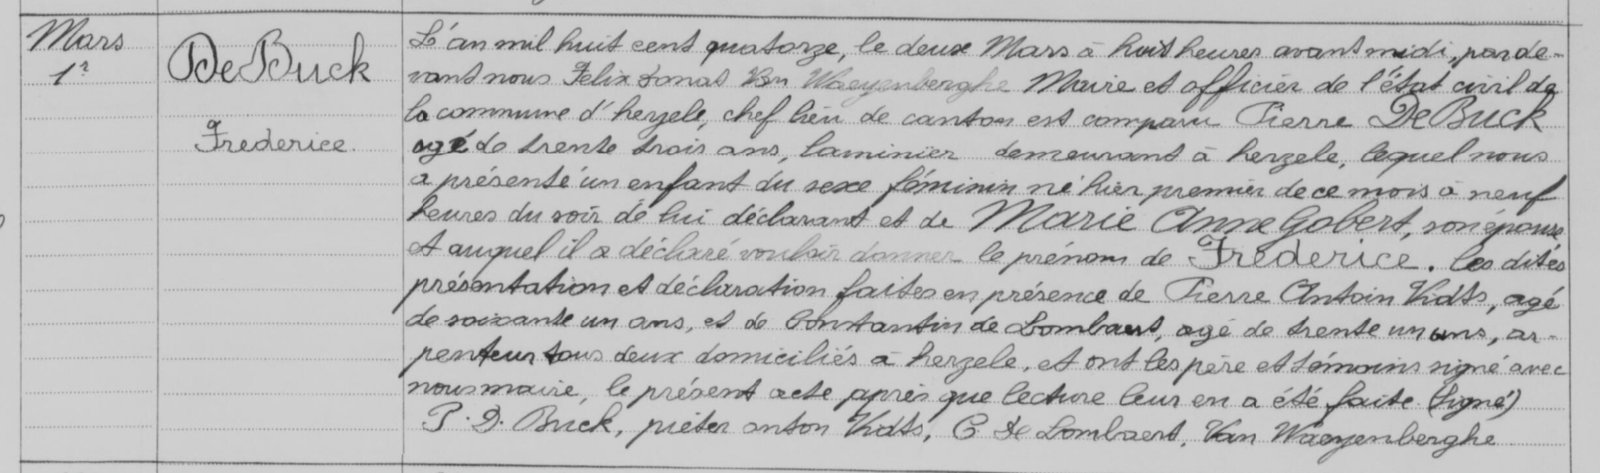 Mars
1r
De Buck
Frederice.
L'an mil huit cent quatorze, le deux Mars à huit heures avant midi, par de-
vant nous Felix Donat Van Waeyenberghe Maire et officier de l'état civil de
la commune d'herzele, chef lieu de canton est comparu Pierre De Buck
agé de trente trois ans, laminier demeurant à herzele, lequel nous
a présenté un enfant du sexe féminin né hier premier de ce mois à neuf
heures du soir de lui déclarant et de Marie Anne Gobert, son épouse
et auquel il a déclaré vouloir donner le prénom de Frederice. Les dites
présentation et déclaration faites en présence de Pierre Antoin Kidts, agé
de soixante un ans, et de Constantin de Lombaert, agé de trente un ans, ar-
penteur tous deux domiciliés à herzele, et ont les père et témoins signé avec
nous maire, le présent acte après que lecture leur en a été faite (signé)
P. D. Buck, pieter anton Kidts, C De Lombaert, Van Waeyenberghe